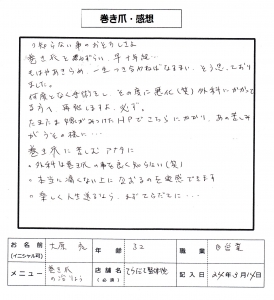 巻き爪・感想
巻き爪を患って、早十年余…
もはやあきらめ、一生つきあわねばなるまい、そう思っておりました。
何度となく手術をし、その度に悪化(笑)外科にかかって
ますから、再発しますよ、必ず。
たまたま娘があつけたHPでこちらにかかり、あの苦しみ
がうその様に…
巻き爪に苦しむアナタに
・外科は巻き爪の事を良く知らない(笑)
・本当に痛くない上に治るのを実感できます
・楽しく人生送るなら、まずてらだてに…
お名前
(イニシャル可)
年齢
32
職業
自営業
メニュー
巻き爪
店舗名
(必須)
てらだて整体院
記入日
24年3月14日